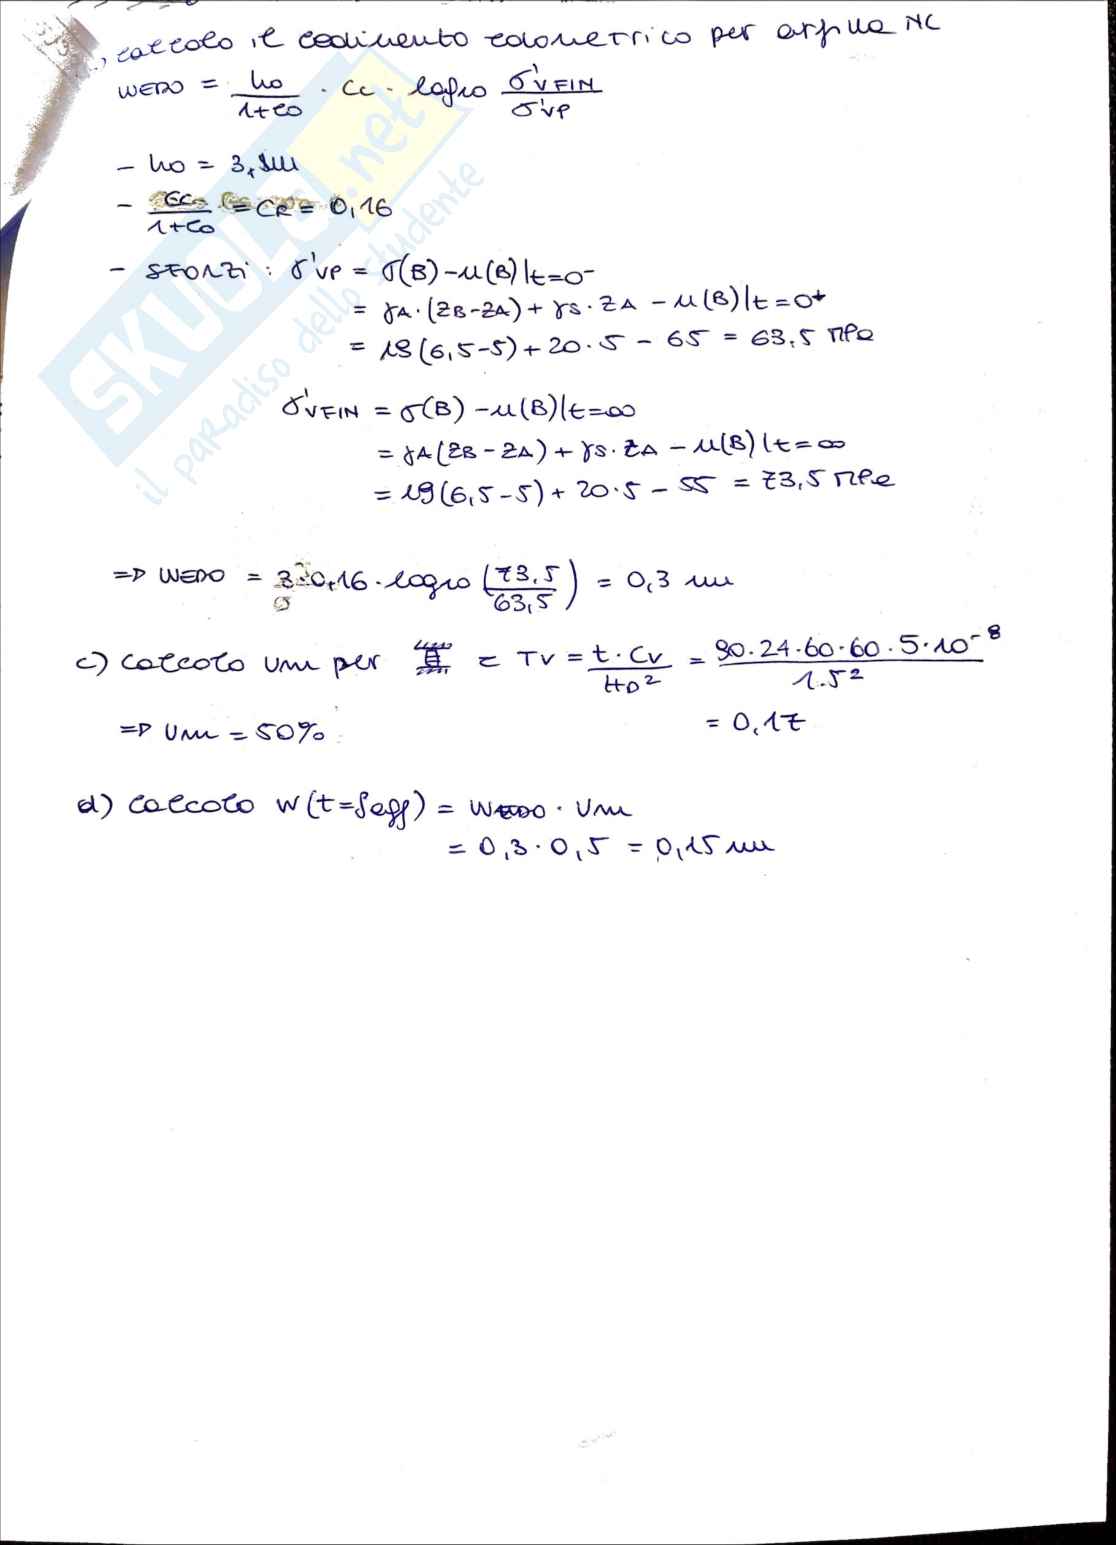 calcolo il cedimento edometrico per argilla NC
WEDO = ho/1+eo · Cc · log10 σ'VFIN/σ'VP
- ho = 3,
- Cc/1+eo = CR = 0,16
- SFORZI : σ'VP = σ(B) - u(B)|t=0⁻
= γA·(ZB-ZA) + γS·ZA - u(B)|t=0⁺
= 19(6,5-5) + 20·5 - 65 = 63,5 MPa
σ'VFIN = σ(B) - u(B)|t=∞
= γA(ZB-ZA) + γS·ZA - u(B)|t=∞
= 19(6,5-5) + 20·5 - 55 = 73,5 MPa
=> WEDO = 3·0,16·log10(73,5/63,5) = 0,3 m
c) calcolo Um per = TV = t·CV/HD² = 90·24·60·60·5·10⁻⁸/1.5²
=> Um = 50%
= 0,17
d) calcolo W(t=) = WEDO · Um
= 0,3·0,5 = 0,15 m
SKUOLA.net
il paradiso dello studente